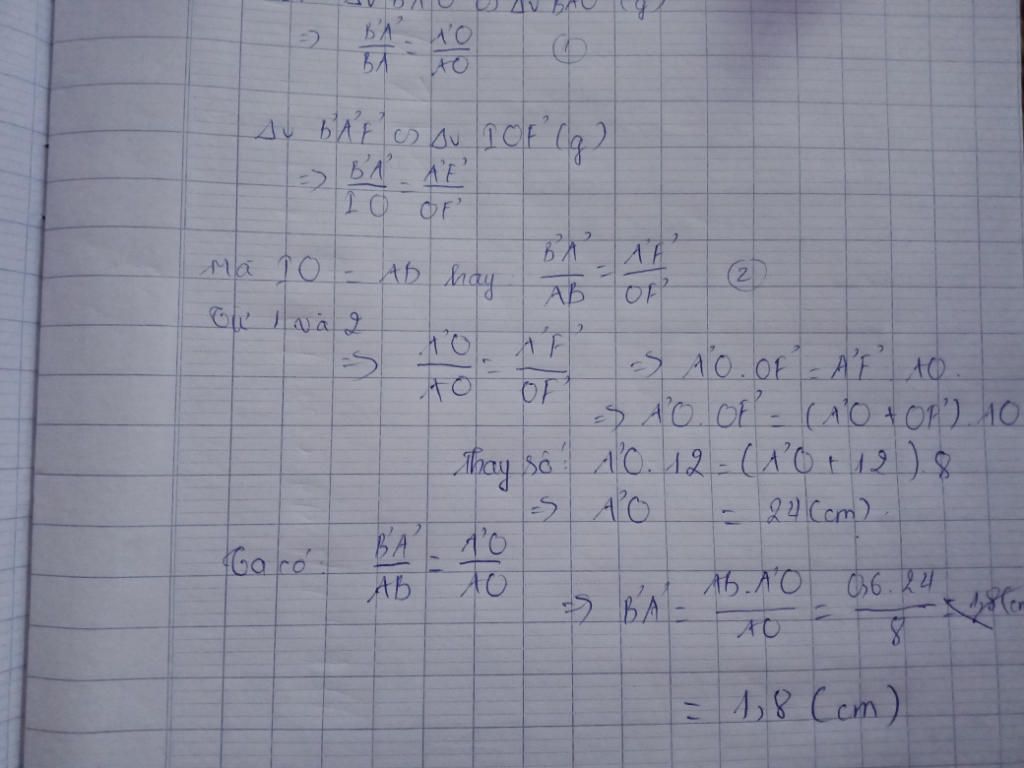 Δv B'A'O ∽ Δv BAO (g)
=> B'A'/BA = A'O/AO (1)
Δv B'A'F' ∽ Δv IOF' (g)
=> B'A'/IO = A'F'/OF'
Mà IO = AB hay B'A'/AB = A'F'/OF' (2)
Từ 1 và 2
=> A'O/AO = A'F'/OF' => A'O.OF' = A'F' AO.
=> A'O.OF' = (A'O + OF').AO
Thay số: A'O.12 = (A'O + 12).8
=> A'O = 24 (cm).
Ta có: B'A'/AB = A'O/AO
=> B'A' = AB.A'O/AO = 0,6.24/8 = 1,8 (cm
= 1,8 (cm)